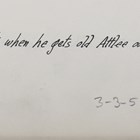 when he gets old Attlee
3-3-5